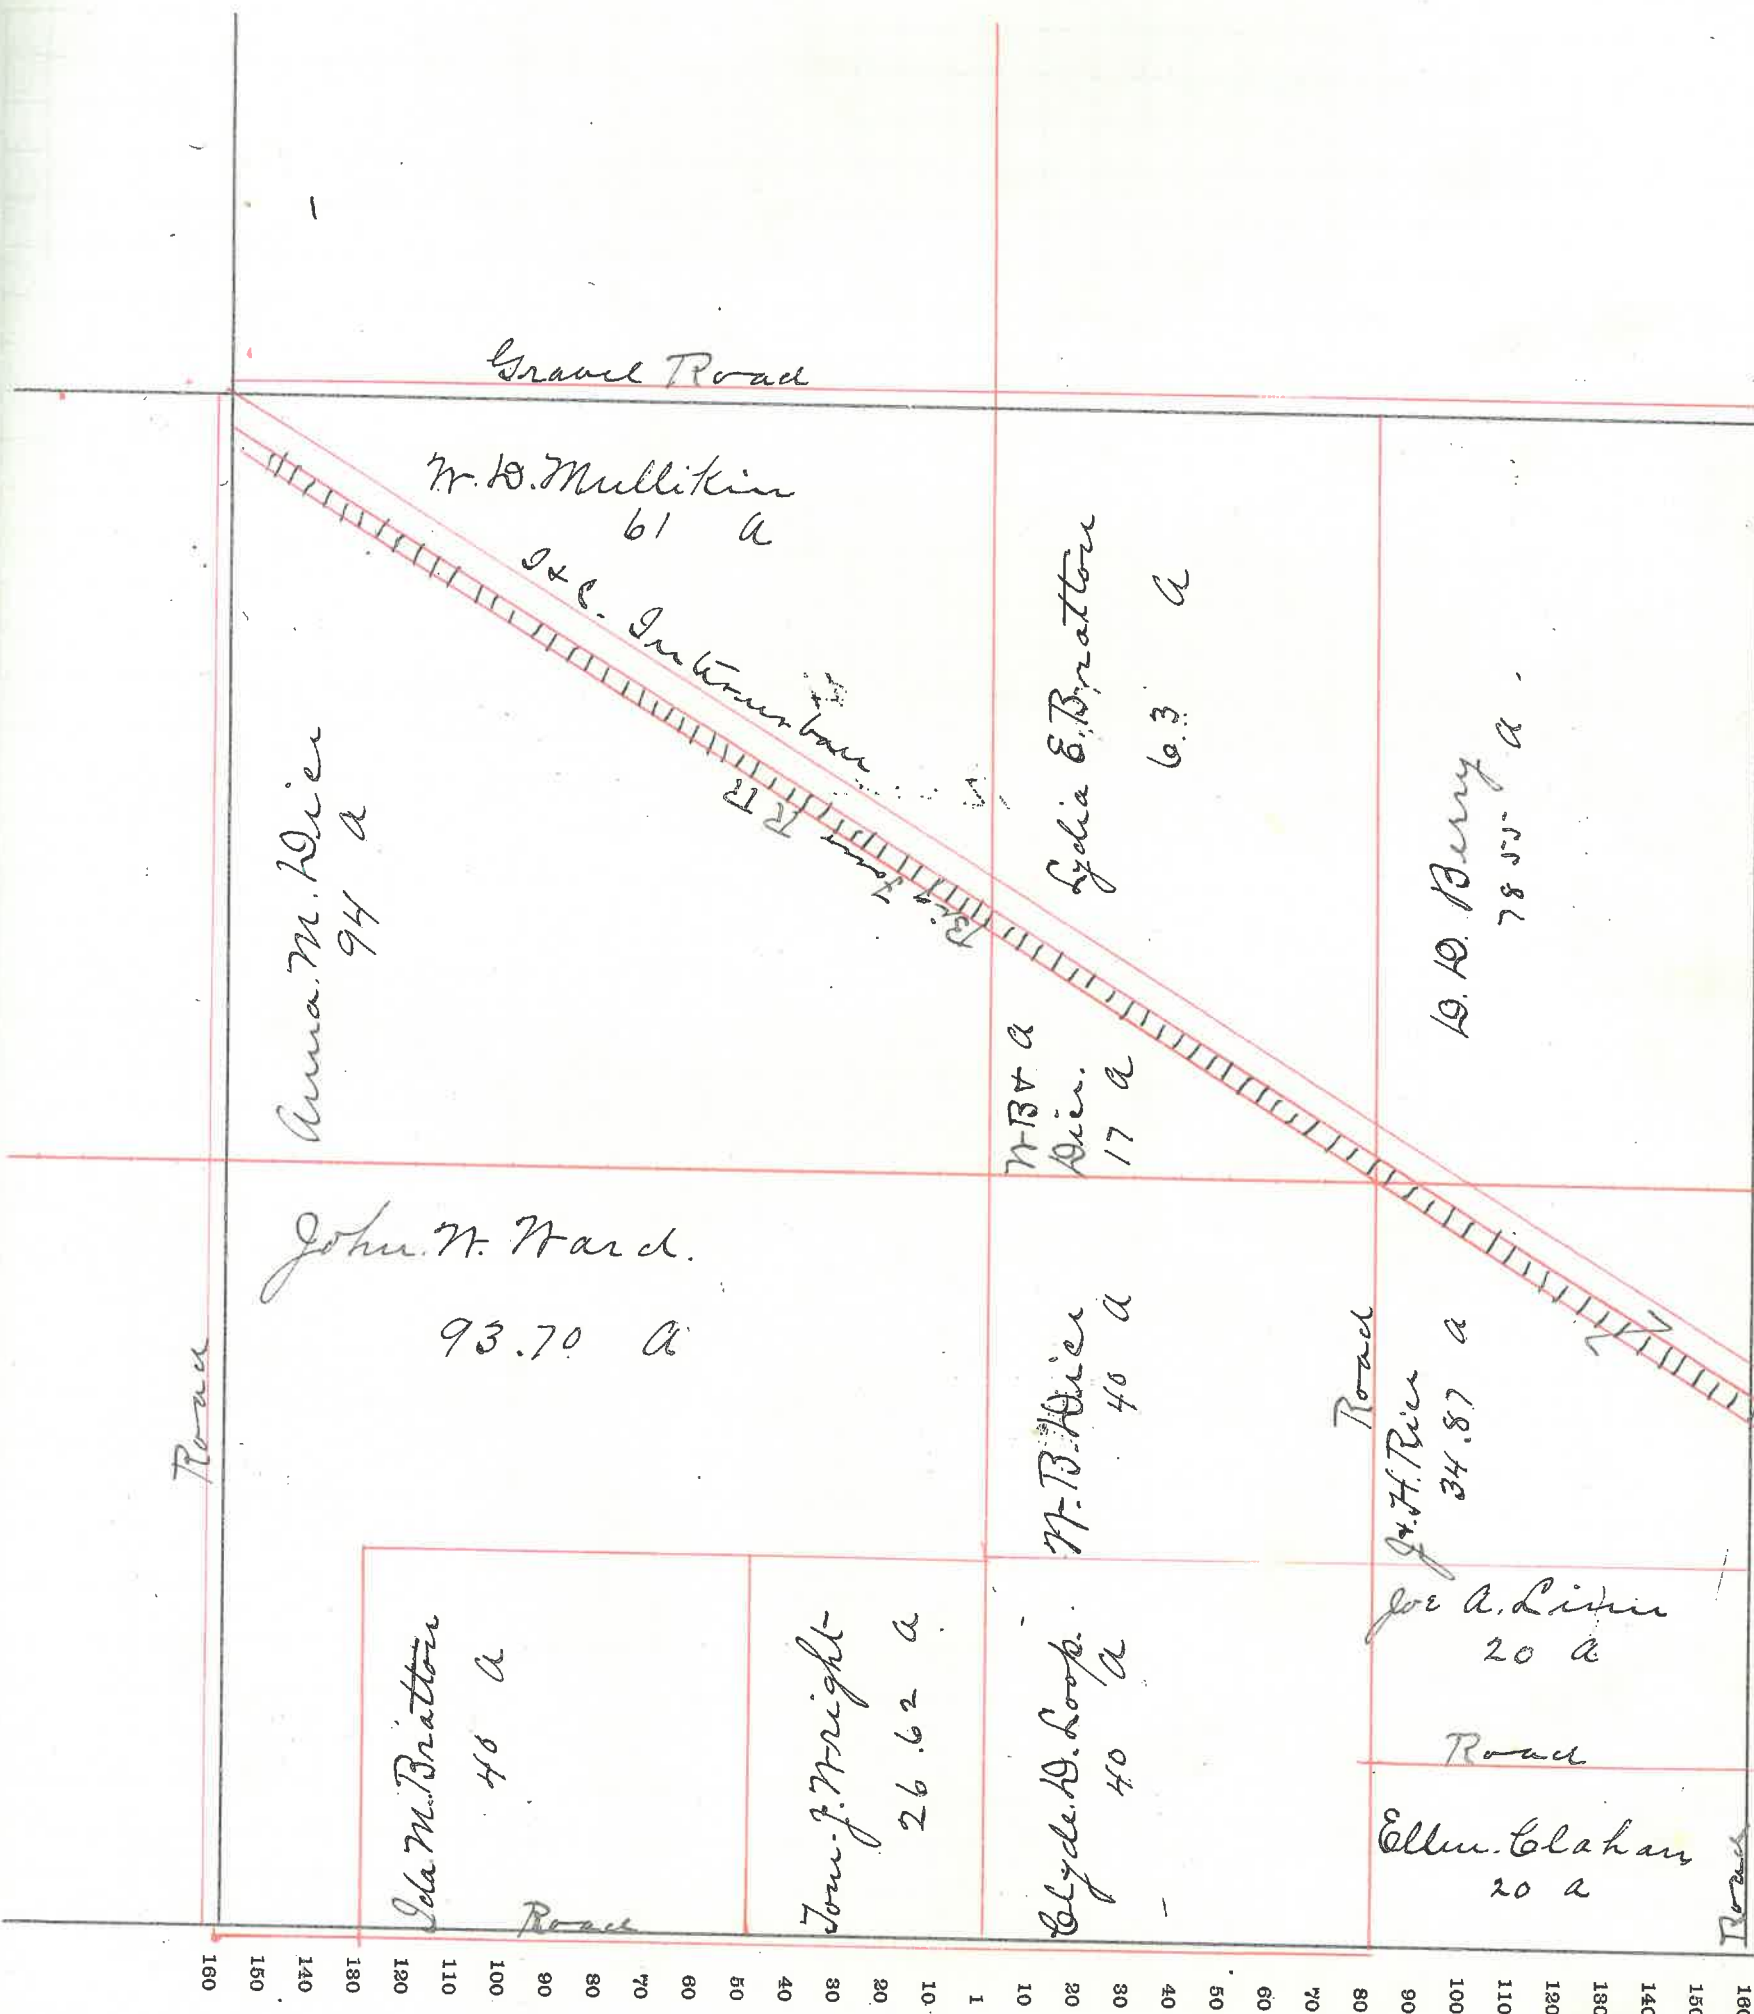 Gravel Road
W. D. Mullikin
61 a
I & C. Interurban
Big Four R R
Anna M. Dier
94 a
Lydia E. Bratton
63 a
D. D. Berry
78 55 a.
W B & A
Dier.
17 a
John W. Ward.
93.70 a
Road
W. B. Dier
40 a
Road
J. H. Rice
34.87 a
Joe A. Linn
20 a
Road
Ida M. Bratton
40 a
Road
Tom J. Wright
26.62 a
Clyde D. Loop.
40 a
Ellen Clahan
20 a
Road
160 150 140 130 120 110 100 90 80 70 60 50 40 30 20 10 1 10 20 30 40 50 60 70 80 90 100 110 120 130 140 150 160